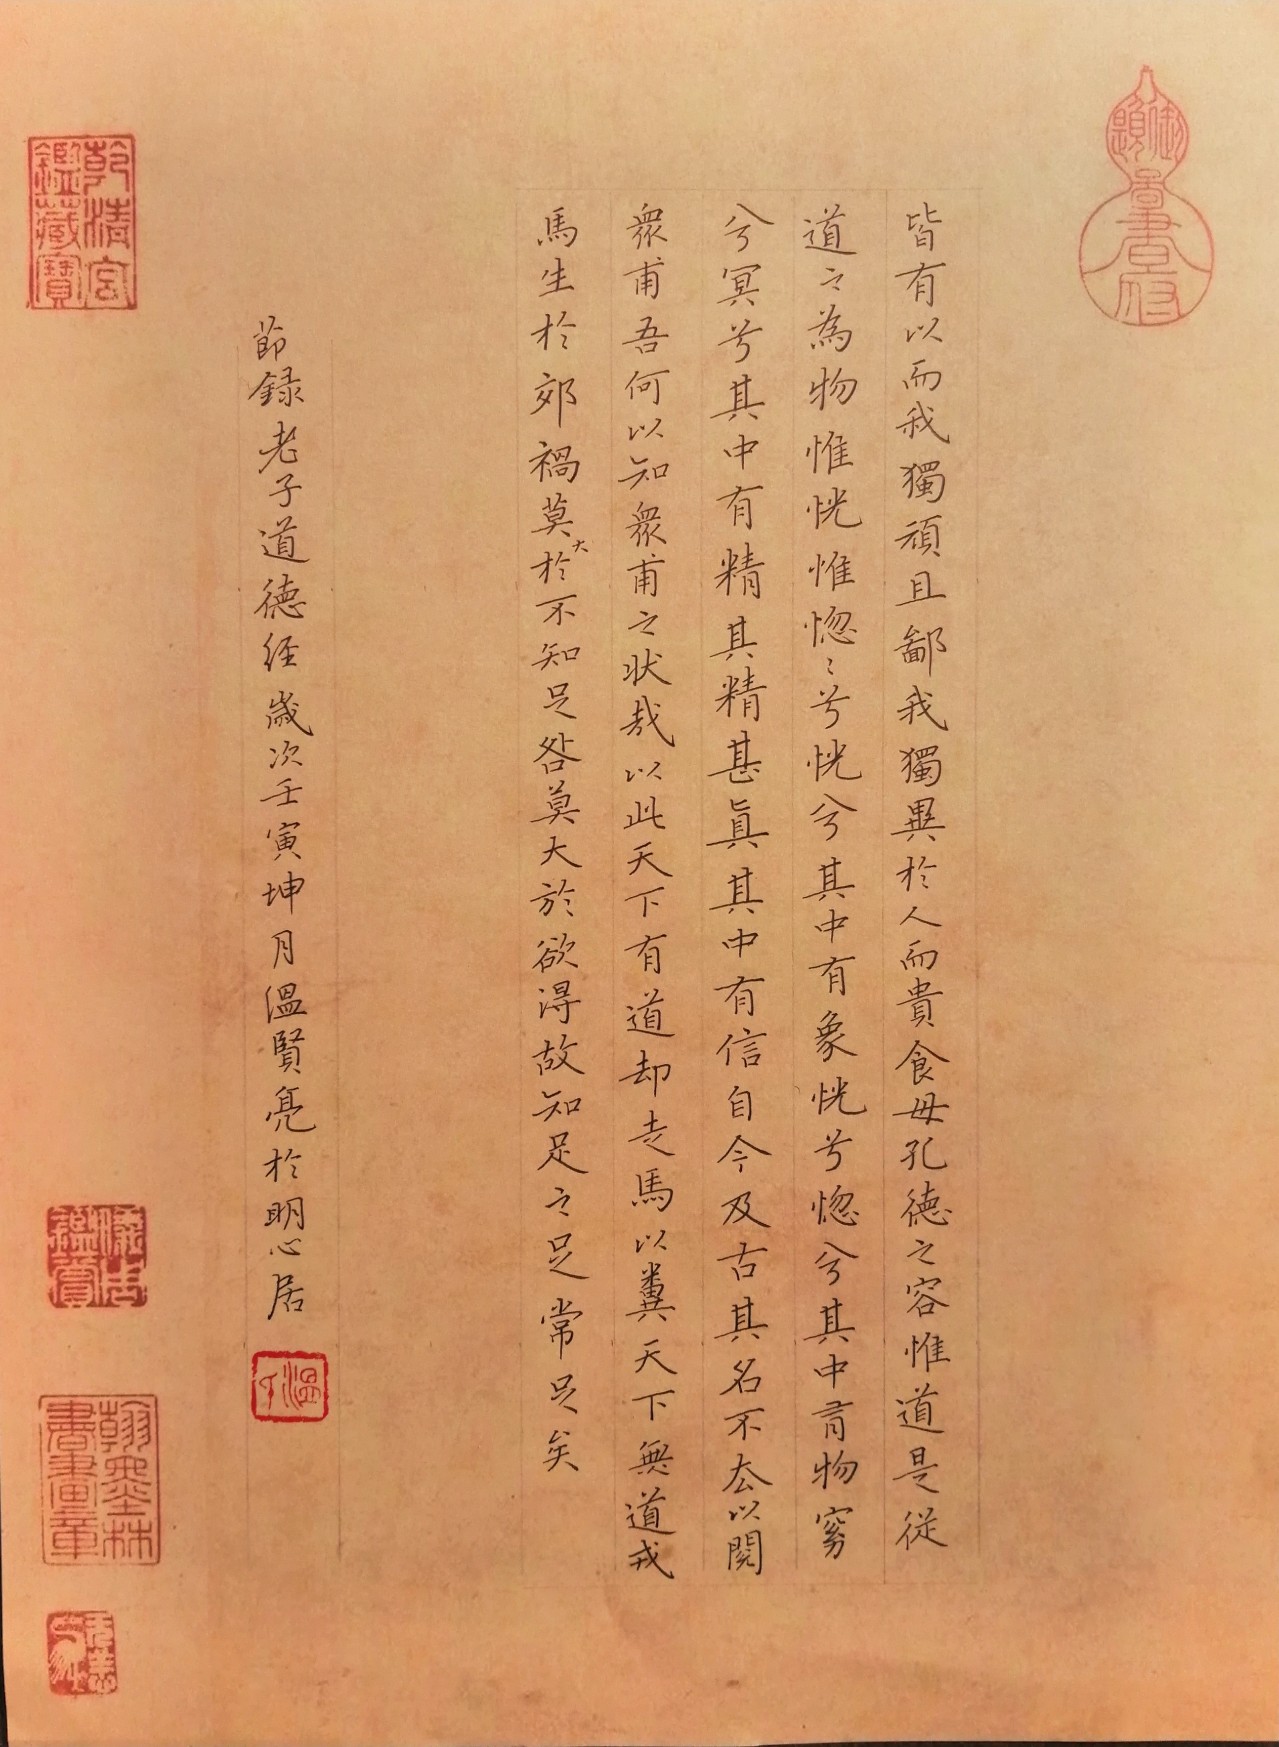 皆有以而我獨頑且鄙我獨異於人而貴食母孔德之容惟道是從
道之為物惟恍惟惚〻兮恍兮其中有象恍兮惚兮其中有物窈
兮冥兮其中有精其精甚真其中有信自今及古其名不去以閱
眾甫吾何以知眾甫之狀哉以此天下有道却走馬以糞天下無道戎
馬生於郊禍莫大於不知足咎莫大於欲得故知足之足常足矣
節録老子道德経歲次壬寅坤月溫賢亮於明心居
御題
畫書府
乾清宮
鑑藏寶
儀周
鑑賞
翰墨林
書畫章
溫